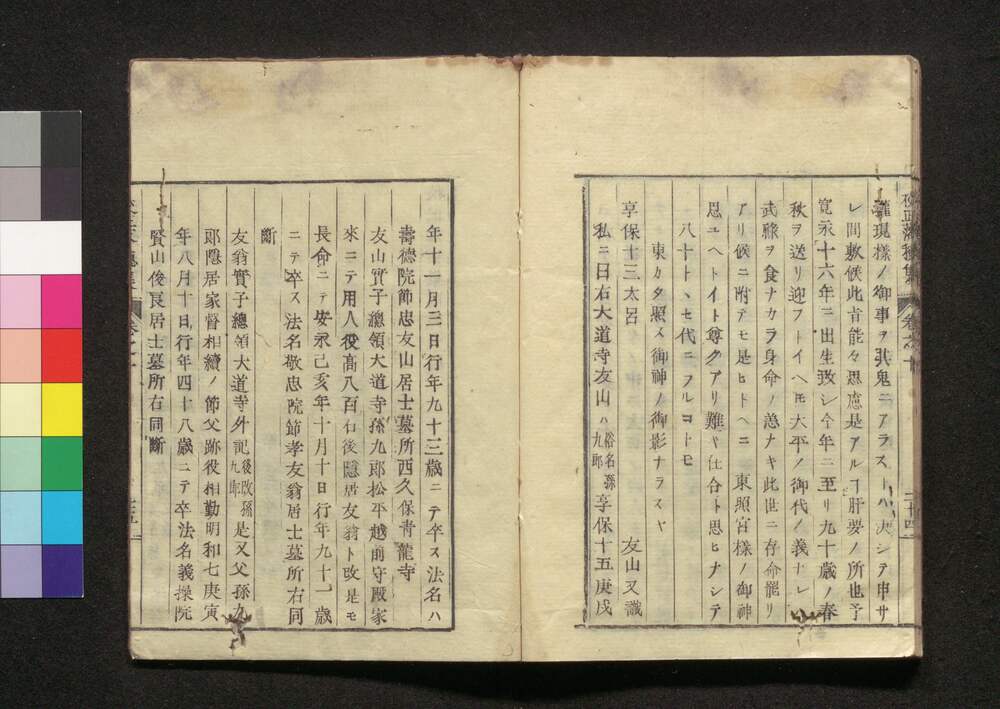 校正落穂集 巻之十 二十四
權現様ノ御事ヲ其鬼ニアラストハ决シテ申サ
レ間敷候此肯能々思慮是アルヿ肝要ノ所也予
寛永十六年ニ出生致シ今年ニ至リ九十歳ノ春
秋ヲ送リ迎フトイヘ𪜈大平ノ御代ノ義ナレハ
武祿ヲ食ナカラ身命ノ恙ナキ此世ニ存命罷リ
アリ候ニ附テモ是ヒトヘニ 東照宮様ノ御神
恩ユヘトイト尊クアリ難キ仕合ト思ヒナシテ
八十トヽセ代ニフルコトモ
東カタ照ス御神ノ御影ナラスヤ
享保十三太呂 友山又識
私ニ曰右大道寺友山ハ俗名孫九郎享保十五庚戌
年十一月三日行年九十三歳ニテ卒ス法名ハ
壽德院節忠友山居士墓所西久保青龍寺
友山實子總領大道寺孫九郎松平越前守殿家
來ニテ用人役高八百石後隱居友翁ト改是モ
長命ニテ安永己亥年十月十日行年九十一歳
ニテ卒ス法名敬忠院節孝友翁居士墓所右同
斷
友翁實子總領大道寺外記後改孫九郎是又父孫九
郎隱居家督相續ノ節父跡役相勤明和七庚寅
年八月十日行年四十八歳ニテ卒法名義操院
賢山俊良居士墓所右同斷